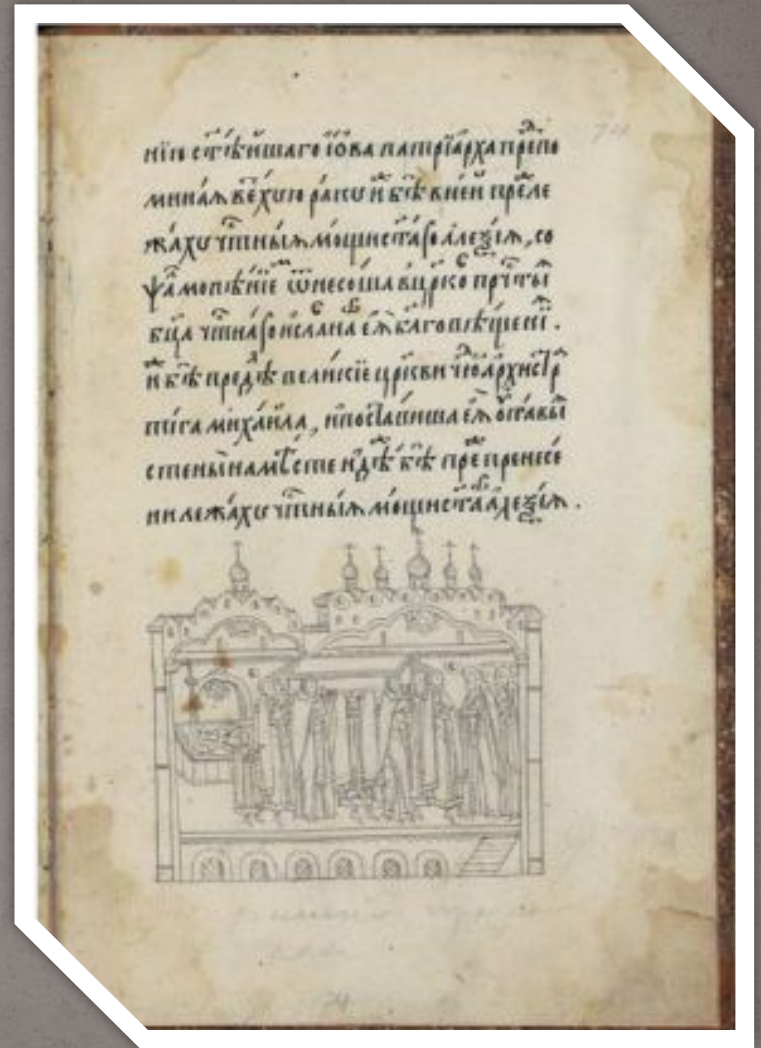 нїю ст҃ѣйшаго їѡ҃ва патрїа́рха прⷣепо
мина́ѧ ве́хꙋю ра́кꙋ и҆ бѣ̀ вне́й прⷣеле
жа́хꙋ чтⷭ҇ны́ѧ мо́щи ст҃а́го а҆леѯі́ѧ, со
ѱа́мопѣ́нїеⷨ ѿнесо́ша вцр҃коⷡ прⷱ҇тыѧ
бц҃а чтⷭ҇на́гоⷢ и сла́внаⷢ еѧ̀ бл҃говѣ́щенї.
и҆ бѣ̀ предⷣѣ вели́кїе цр҃кви чюⷣ архистр
тига миха́ила, и поста́виша еѧ̀ ѹ пра́вы
стены̀ намѣ́сте идѣ́же бѣ̀ преⷤ пренесе́
ни лежа́хꙋ чтⷭ҇ны́ѧ мо́щи ст҃аⷢ а҆леѯі́ѧ.